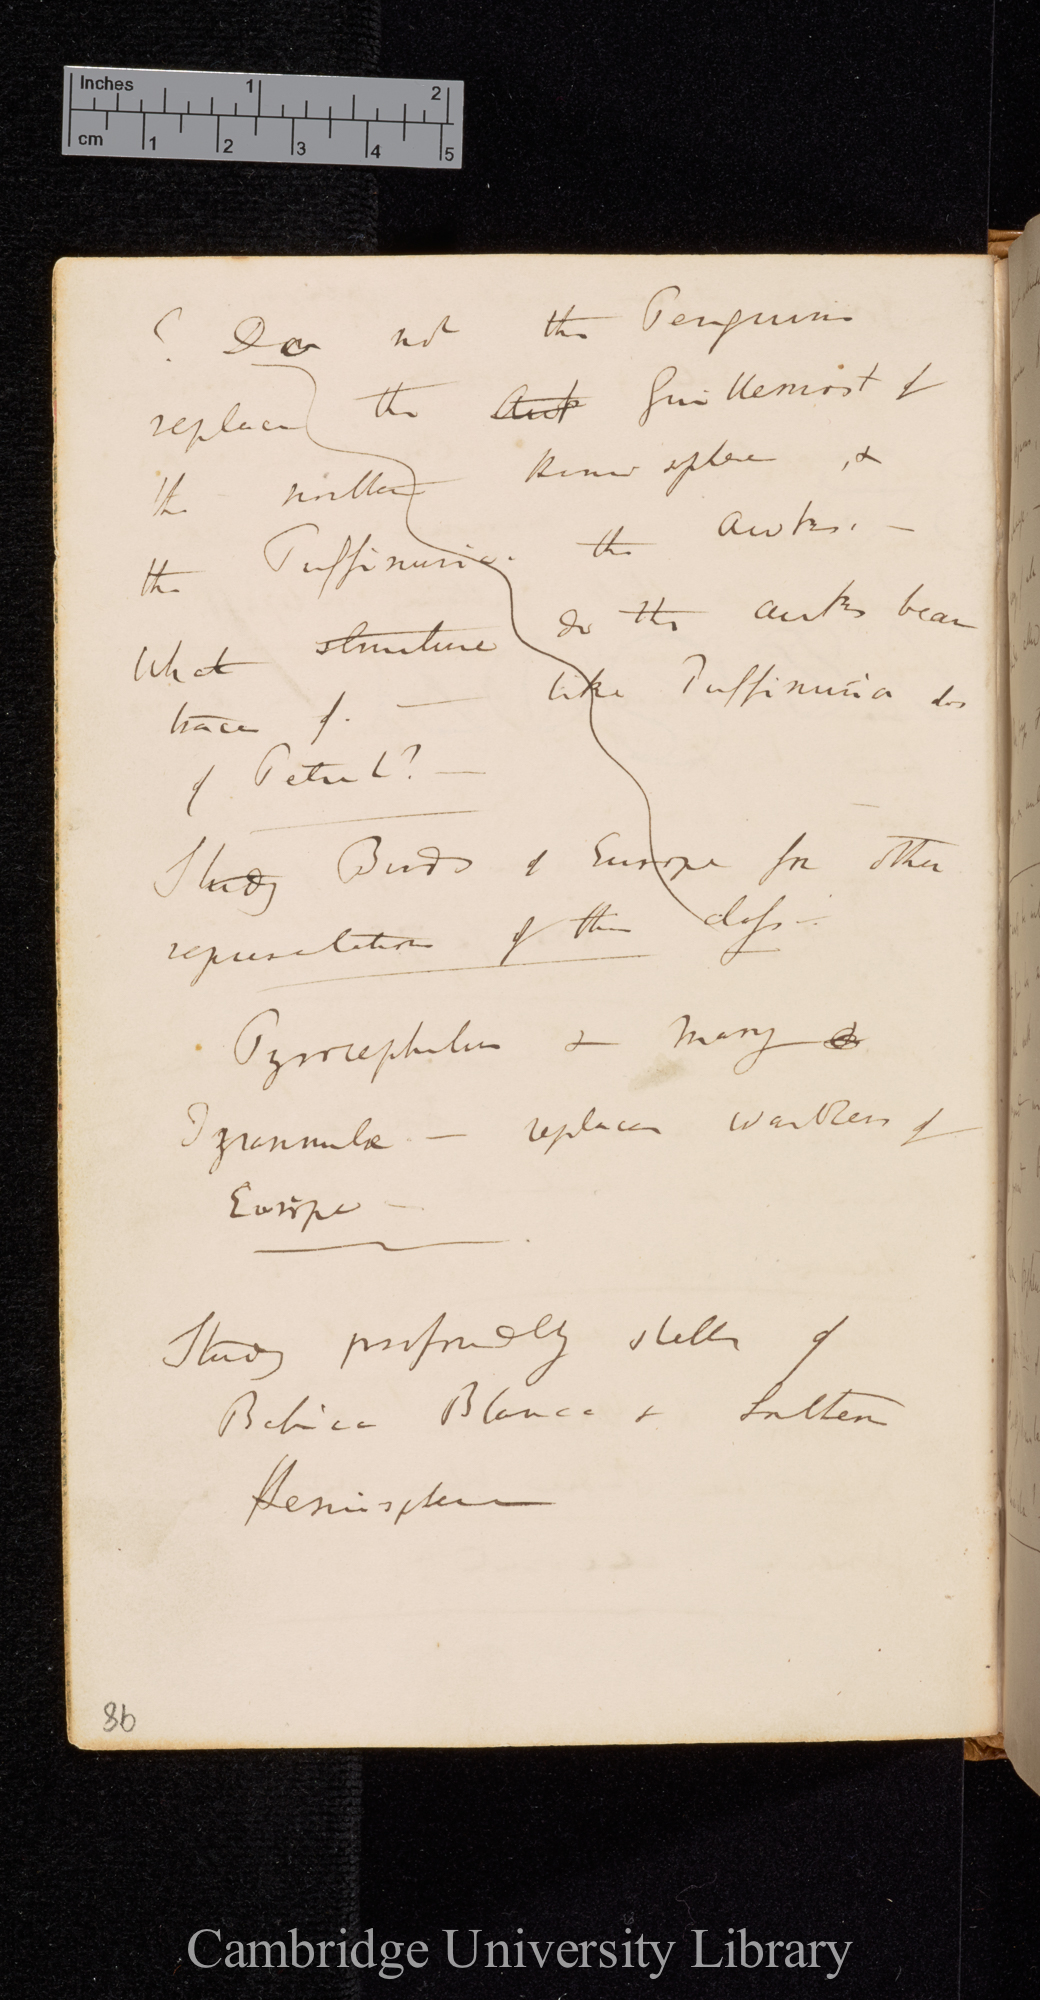 Inches 1 2
cm 1 2 3 4 5
? Do not the Penguins
replace the Auk Guillemost of
the northern hemisphere, &
the Puffinuria the auks. —
What structure do the auks bear
trace of. — like Puffinuria does
of Petrel? —
Study Birds of Europe for other
representation of this class —
Pyrocephalus & many &
Tyrannula — replaces warblers of
Europe —
Study profoundly shells of
Bahica Blanca & Southern
Hemisphere
86
Cambridge University Library